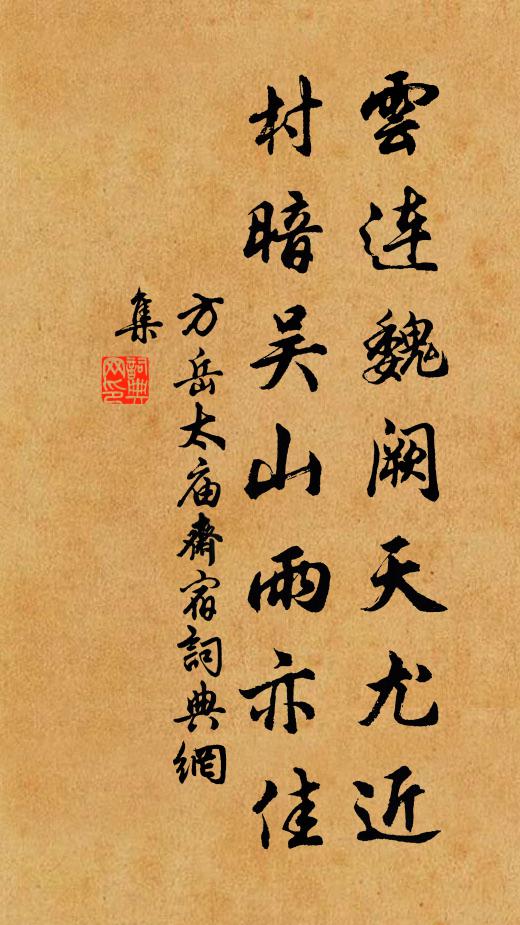 雲連魏闕天尤近
村暗吴山雨亦佳
方岳太庙齋宿詞典網
集
詞典
网印